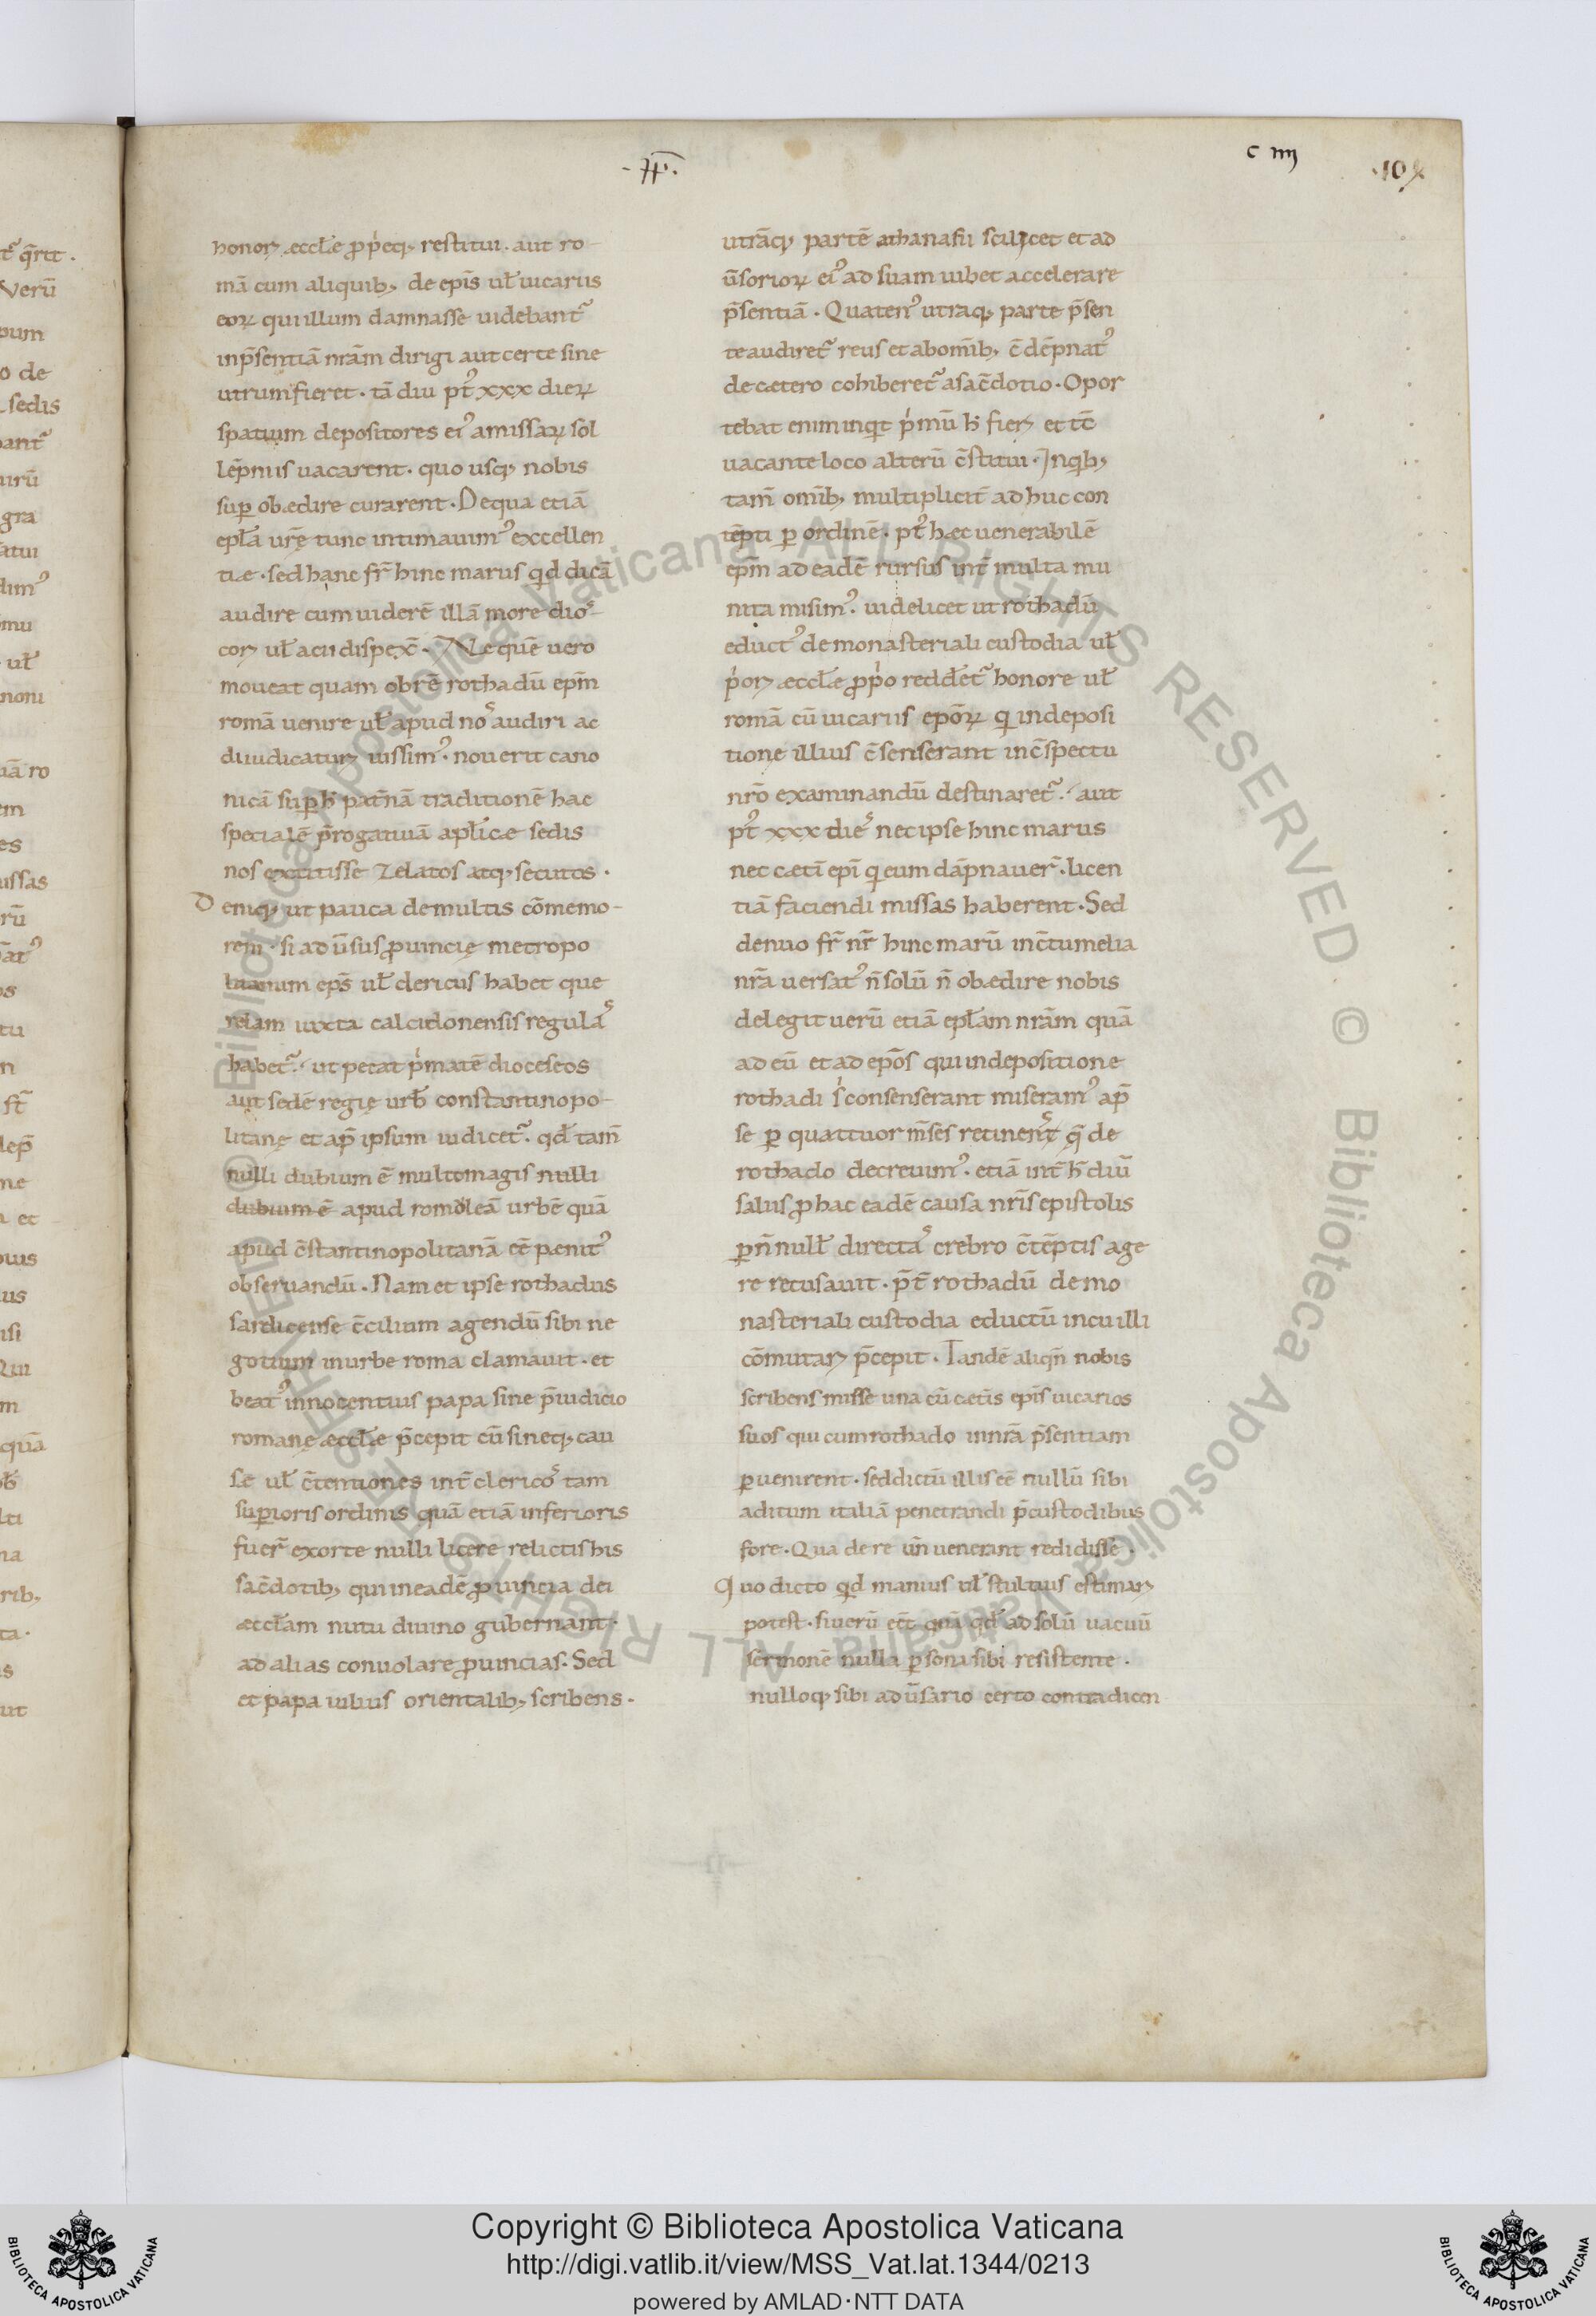 c iiii
·10
honorꝝ æccƚę ꝓpͥeq; restitui. aut ro-
mā cum aliquib; de epīs uƚ uicariis
eoꝝ qui illum damnasse uidebant᷑
inp̄sentiā nrām dirigi aut certe sine
utrumfieret. tā diu pꝰt xxx dieꝝ
spatium depositores eiꝰ amissaꝝ sol
lēpniis uacarent. quo usq; nobis
suꝑ obędire curarent. Dequa etiā
epƚā urę̄ tunc intimauimꝰ excellen
tiæ. sed hanc fr̄ hincmarus qd dicā
audire cum uiderē illā more dios-
corꝝ uƚ acii dispex̄. Nequē uero
moueat quam obrē rothadū epm̄
romā uenire uƚ apud nos audiri ac
diiudicaturꝝ iussimꝰ. nouerit cano
nicā suꝑ h̄ pat̄nā traditionē hac
specialē p̄rogatiuā apƚicæ sedis
nos extitisse zelatos atq; secutos.
Deniq; ut pauca demultis cōmemo-
rem. si adūsus ꝓuincię metropo
litanum eps̄ uƚ clericus habet que
relam iuxta calcidonensis regulas
habet᷑. ut petat pͥmatē dioceseos
aut sedē regię urƀ constantinopo-
litanę et ap̄ ipsum iudicet᷑. qđ tam̄
nulli dubium ē multomagis nulli
dubium ē apud romuleā urbē quā
apud c̄stantinopolitanā eē pænitꝰ
obseruandū. Nam et ipse rothadus
sardicense c̄cilium agendū sibi ne
gotium inurbe roma clamauit. et
beatꝰ innocentius papa sine p̄iudicio
romanę æccƚæ p̄cepit cū sineq; cau
se uƚ c̄tentiones int̄ clericos tam
suꝑioris ordinis quā etiā inferioris
fuer̄ exorte nulli licere relictis his
sac̄dotib; qui ineadē ꝓuincia dei
æccƚam nutu diuino gubernant.
ad alias conuolare ꝓuincias. Sed
et papa iulius orientalib; scribens.
utrāq; partē athanasii scilicet et ad
ūsorioꝝ eiꝰ ad suam iubet accelerare
p̄sentiā. Quatenꝰ utraq; parte p̄sen
te audiret᷑ reus et abomīb; c̄dēpnatꝰ
de cætero cohiberet᷑ a sac̄dotio. Opor
tebat enim inquit pͥmū h̄ fierꝝ et tc̄
uacante loco alterū c̄stitui. Inqͥb;
tam̄ omīb; multiplicit̄ ad huc con
tēpti ꝑ ordinē. pꝰt hæc uenerabilē
epm̄ ad eadē rursus int̄ multa mu
nita misimꝰ. uidelicet ut rothadū
eductꝰ de monasteriali custodia uƚ
pͥorꝝ æccƚæ ꝓpͥo reddet᷑ honore uƚ
romā cū uicariis epōꝝ qͥ indeposi
tione illius c̄senserant inc̄spectu
nrō examinandū destinaret᷑. aut
pꝰt xxx dies nec ipse hincmarus
nec cætī epī qͥ eum dāpnauer̄. licen
tiā faciendi missas haberent. Sed
denuo fr̄ nr̄ hincmarū inc̄tumelia
nrā uersatꝰ n̄ solū n̄ obædire nobis
delegit uerū etiā epƚam nrām quā
ad eū et ad epōs qui indepositione
rothadi sͥ consenserant miseramꝰ ap̄
se ꝑ quattuor m̄ses retinens q̄ de
rothado decreuimꝰ. etiā int̄ h̄ diū
salus ꝓ hac eadē causa nrīs epistolis
ꝑ n̄null directas crebro c̄tēptis age
re recusauit. p̄t̄ rothadū de mo
nasteriali custodia eductū incuilli
cōmutarꝝ p̄cepit. Tandē aliqn̄ nobis
scribens misse una cū cætīs epīs uicarios
suos qui cum rothado innrā p̄sentiam
ꝑuenirent. sed dictū illis eē nullū sibi
aditum italiā penetrandi p̄custodibus
fore. Qua de re un̄ uenerant redidisse.
Quo dicto qͥd manius uƚ stultius estimarꝝ
potest. siuerū eēt quā qđ ad solū uacuū
sermonē nulla ꝑsona sibi resistente.
nulloq; sibi adūsario certo contradicen
Copyright © Biblioteca Apostolica Vaticana
http://digi.vatlib.it/view/MSS_Vat.lat.1344/0213
powered by AMLAD·NTT DATA